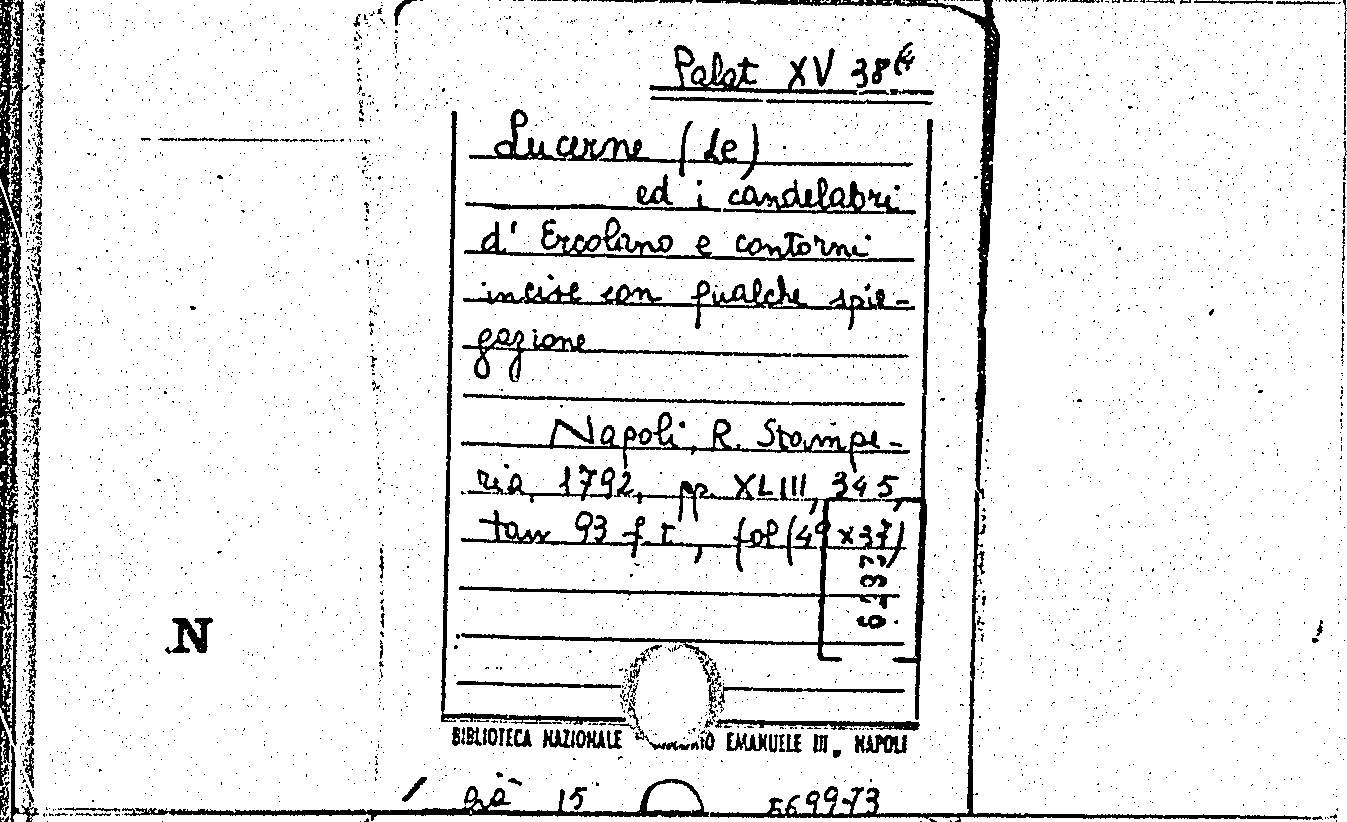 Palat XV 38
Lucerne (Le)
ed i candelabri
d' Ercolano e contorni
incise con qualche spie-
gazione
Napoli, R. Stampe-
ria, 1792, pp. XLIII, 345,
tav 93 f. t., fol (49x37)
N
BIBLIOTECA NAZIONALE EMANUELE III, NAPOLI
già 15 569973